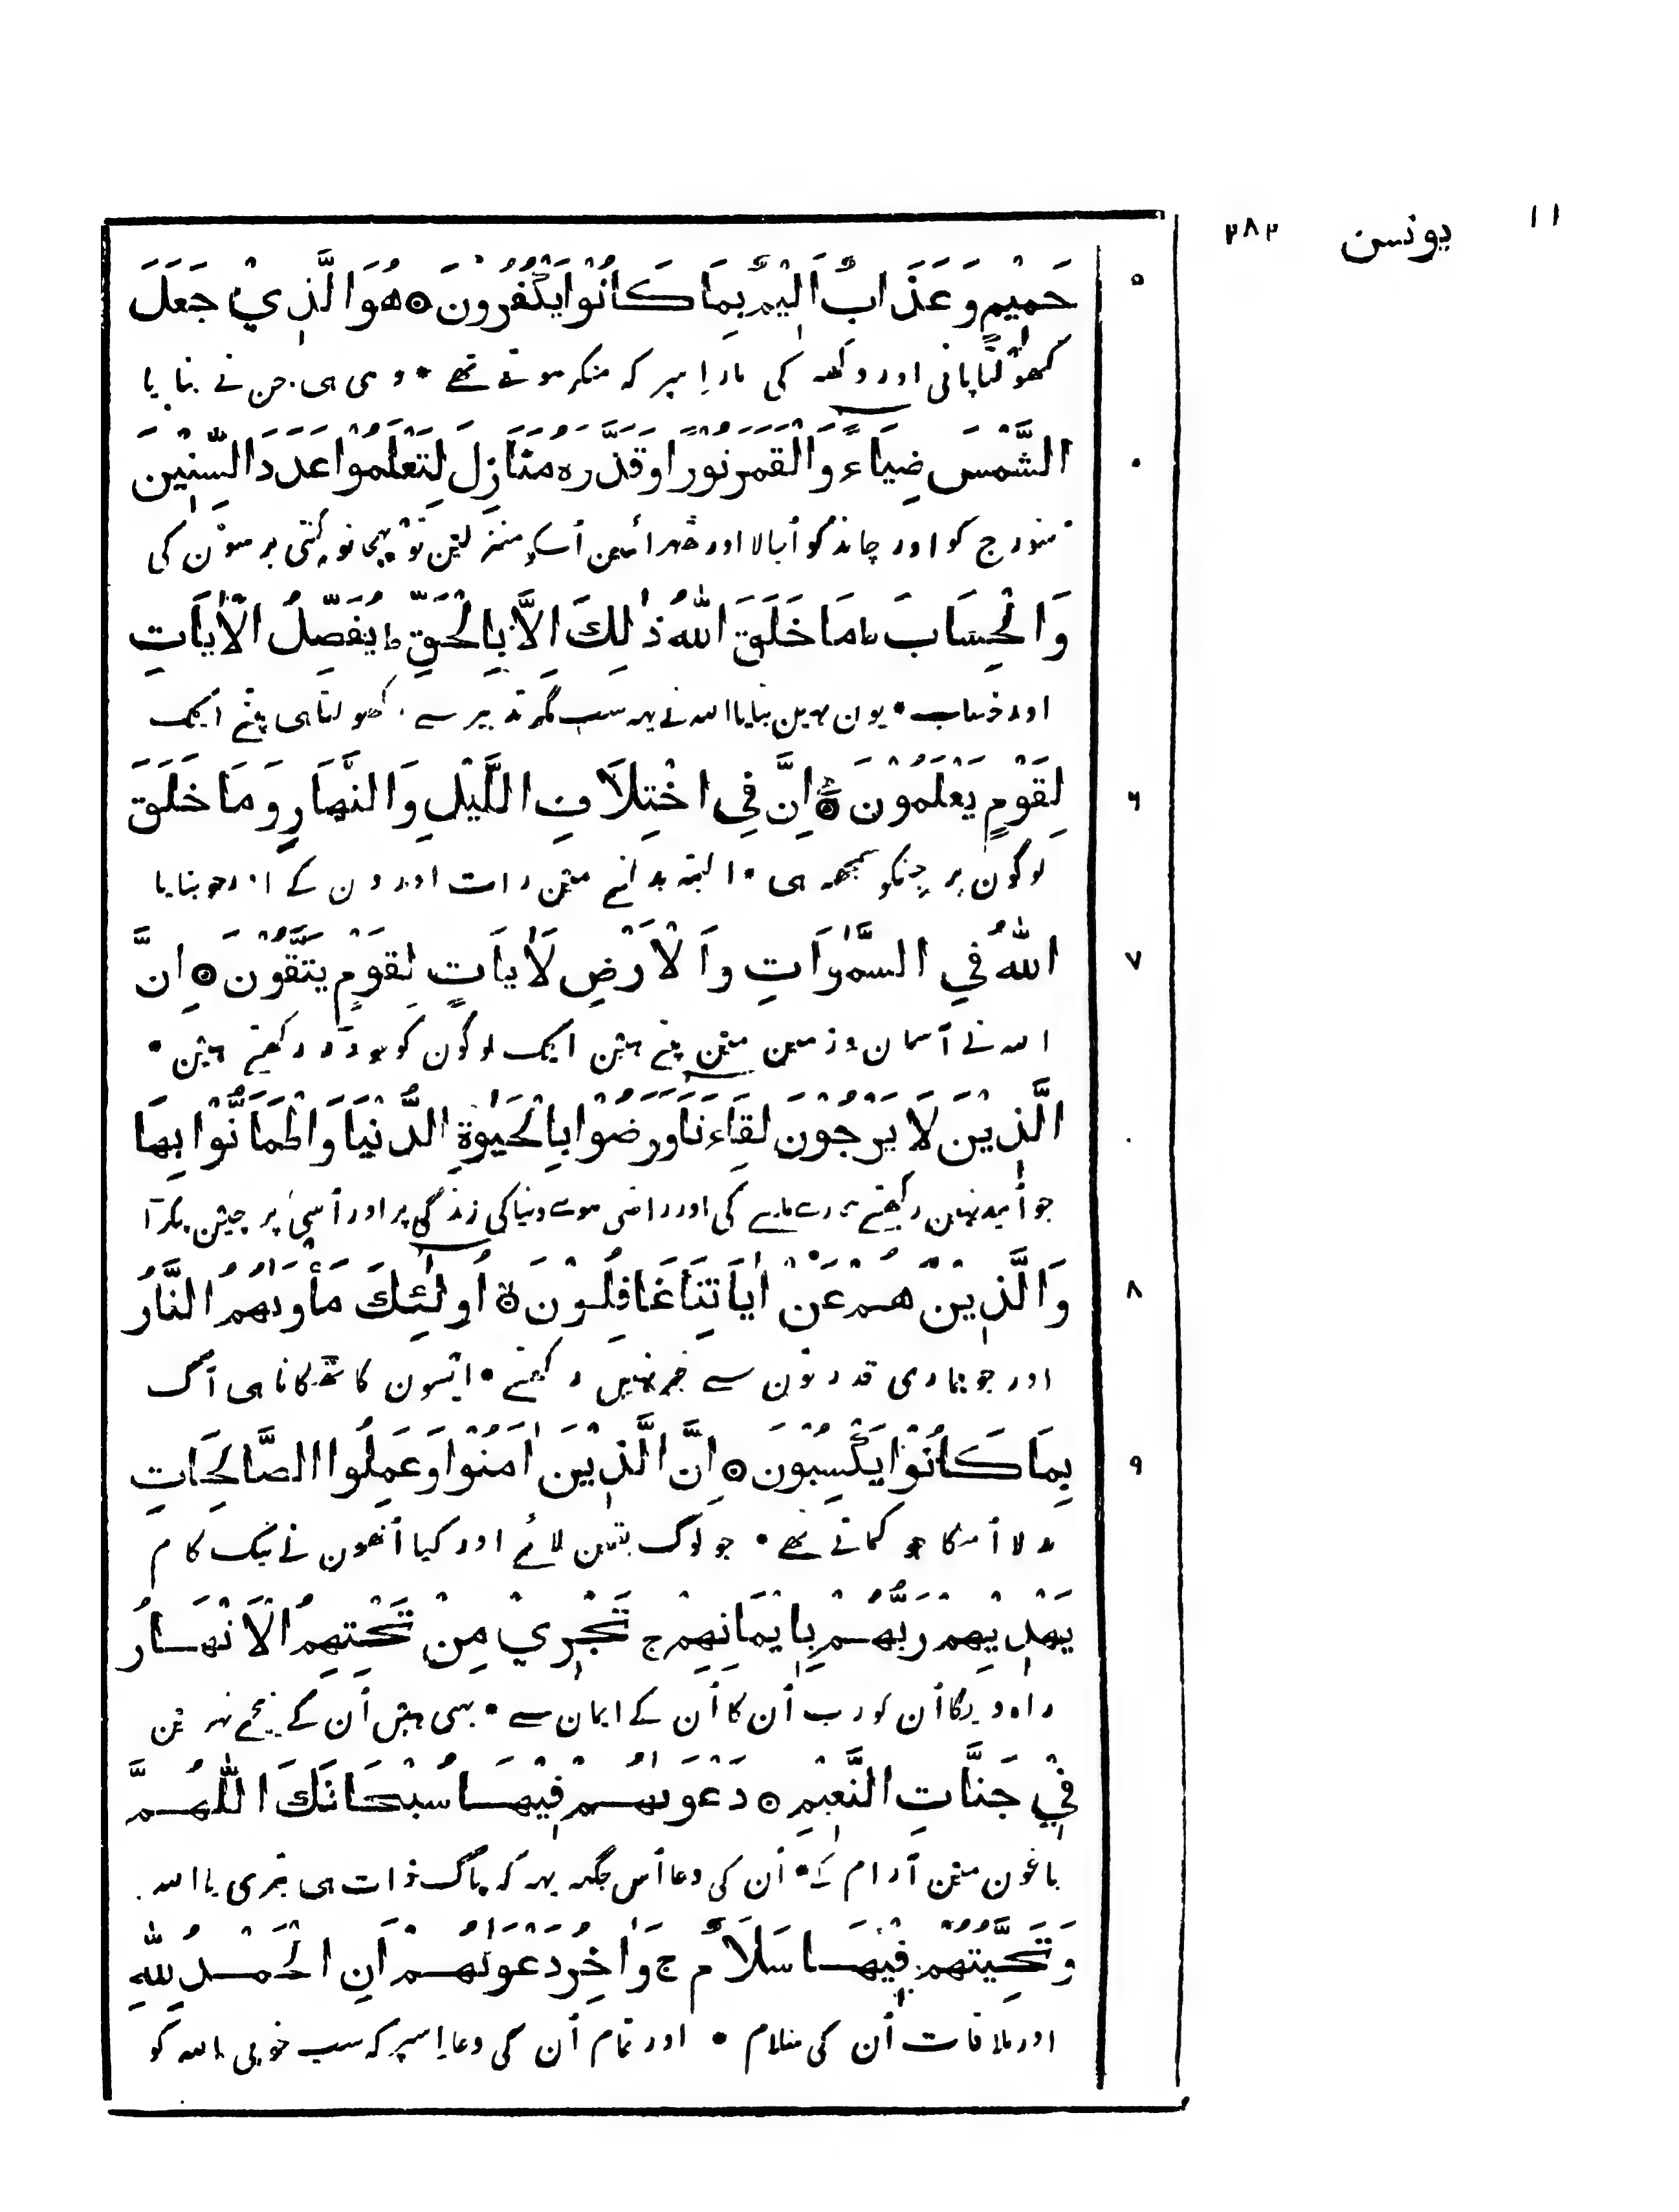 ۱۱ يونس ۲۸۲
حَمِيْمٍ وَعَذَابٌ اَلِيْمٌ بِمَا كَانُوْا يَكْفُرُوْنَ ۞ هُوَ الَّذِيْ جَعَلَ ۵
کھولتا پانی اور دکھہ کی مار اِسپر کہ منکر ہوتے تھے • وہی ہی جن نے بنایا
الشَّمْسَ ضِيَاءً وَالْقَمَرَ نُوْرًا وَقَدَّرَهُ مَنَازِلَ لِتَعْلَمُوْا عَدَدَ السِّنِيْنَ
سورج کو اور چاند کو اُجالا اور تھہرائین اُسکو منزلین تو پہچانو گنتی برسون کی
وَالْحِسَابَ ط مَا خَلَقَ اللّٰهُ ذٰلِكَ اِلَّا بِالْحَقِّ ط يُفَصِّلُ الْاٰيَاتِ
اور حساب • یون نہین بنایا اللہ نے یہہ سب مگر تدبیر سے کھولتا ہی پتے ایک
لِقَوْمٍ يَعْلَمُوْنَ ۞ اِنَّ فِى اخْتِلَافِ اللَّيْلِ وَالنَّهَارِ وَمَا خَلَقَ ۶
لوگون پر جنکو سمجھہ ہی • البتہ بدلنے مین رات اور دن کے اور جو بنایا
اللّٰهُ فِي السَّمٰوَاتِ وَالْاَرْضِ لَاٰيَاتٍ لِقَوْمٍ يَتَّقُوْنَ ۞ اِنَّ ۷
اللہ نے آسمان و زمین مین پتے ہین ایک لوگون کو جو ڈر رکھتے ہین •
الَّذِيْنَ لَا يَرْجُوْنَ لِقَاءَنَا وَرَضُوْا بِالْحَيٰوةِ الدُّنْيَا وَاطْمَاَنُّوْا بِهَا
جو اُمید نہین رکھتے ہمارے ملنے کی اور راضی ہوے دنیا کی زندگی پر اور اُسی پر چین پکڑا
وَالَّذِيْنَ هُمْ عَنْ اٰيَاتِنَا غَافِلُوْنَ ۞ اُولٰئِكَ مَأْوٰىهُمُ النَّارُ ۸
اور جو ہماری قدرتون سے خبر نہیں رکھتے • ایسون کا ٹھکانا ہی آگ
بِمَا كَانُوْا يَكْسِبُوْنَ ۞ اِنَّ الَّذِيْنَ اٰمَنُوْا وَعَمِلُوا الصَّالِحَاتِ ۹
بدلا اُسکا جو کماتے تھے • جو لوگ یقین لائے اور کیا اُنھون نے نیک کام
يَهْدِيْهِمْ رَبُّهُمْ بِاِيْمَانِهِمْ ج تَجْرِيْ مِنْ تَحْتِهِمُ الْاَنْهَارُ
راہ دیگا اُن کو رب اُن کا اُن کے ایمان سے • بہتی ہین اُن کے نیچے نہرین
فِيْ جَنَّاتِ النَّعِيْمِ ۞ دَعْوٰىهُمْ فِيْهَا سُبْحَانَكَ اللّٰهُمَّ
باغون مین آرام کے • اُن کی دعا اُس جگہہ یہہ کہ پاک ذات ہی تیری یا اللہ
وَتَحِيَّتُهُمْ فِيْهَا سَلَامٌ ج وَاٰخِرُ دَعْوٰىهُمْ اَنِ الْحَمْدُ لِلّٰهِ
اور ملاقات اُن کی سلام • اور تمام اُن کی دعا اِسپر کہ سب خوبی اللہ کو